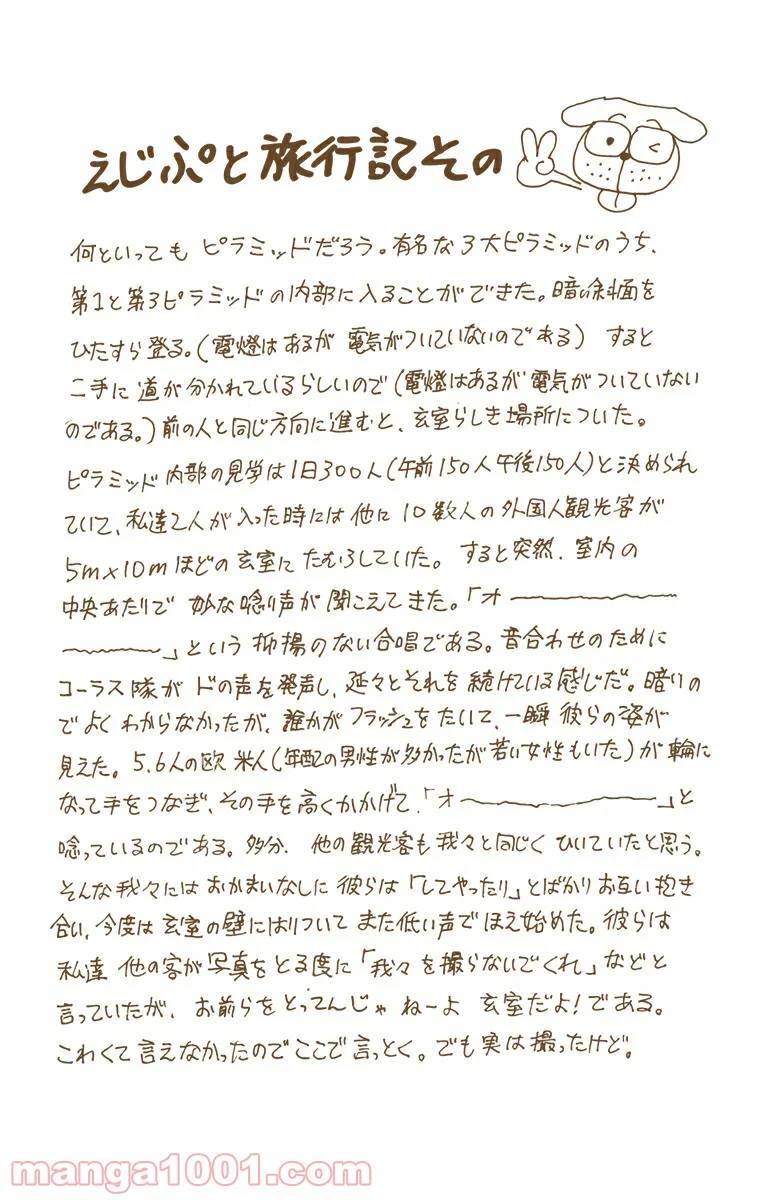 えじぷと旅行記その
何といっても ピラミッドだろう。有名な3大ピラミッドのうち、
第1と第3ピラミッドの内部に入ることができた。暗い斜面を
ひたすら登る。(電燈はあるが 電気がついていないのである) すると
二手に道が分かれているらしいので(電燈はあるが電気がついていない
のである。)前の人と同じ方向に進むと、玄室らしき場所についた。
ピラミッド内部の見学は1日300人(午前150人午後150人)と決められ
ていて、私達2人が入った時には他に10数人の外国人観光客が
5m×10mほどの玄室にたむろしていた。 すると突然、室内の
中央あたりで 妙な唸り声が聞こえてきた。「オ〜〜〜
〜〜〜」という抑揚のない合唱である。音合わせのために
コーラス隊がドの声を発声し、延々とそれを続けている感じだ。暗いの
でよくわからなかったが、誰かがフラッシュをたいて、一瞬彼らの姿が
見えた。5、6人の欧米人(年配の男性が多かったが若い女性もいた)が輪に
なって手をつなぎ、その手を高くかかげて、「オ〜〜〜」と
唸っているのである。多分、他の観光客も我々と同じくひいていたと思う。
そんな我々にはおかまいなしに彼らは「してやったり」とばかりお互い抱き
合い、今度は玄室の壁にはりついてまた低い声でほえ始めた。彼らは
私達 他の客が写真をとる度に「我々を撮らないでくれ」などと
言っていたが、お前らをとってんじゃねーよ 玄室だよ!である。
こわくて言えなかったのでここで言っとく。でも実は撮ったけど。
manga1001.com